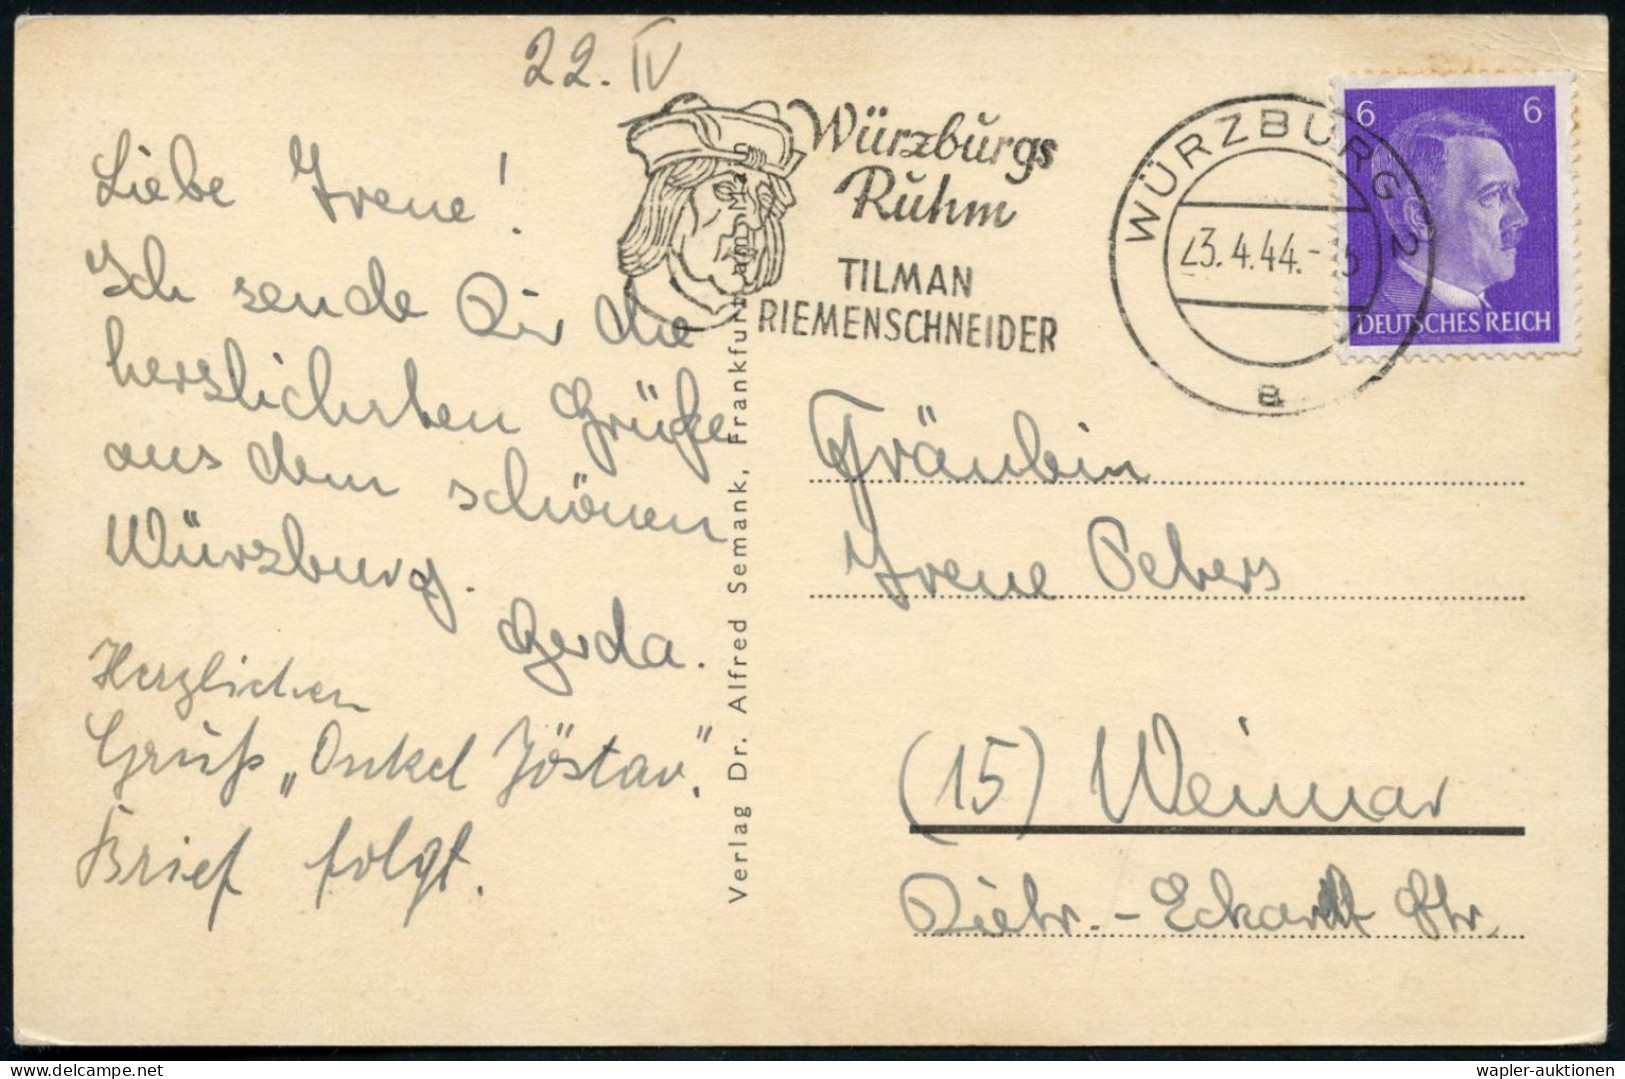 22. IV
Liebe Irene!
Ich sende Dir die
herzlichsten Grüße
aus dem schönen
Würzburg.
Gerda.
Herzlichen
Gruß „Onkel Jöstav."
Brief folgt.
Verlag Dr. Alfred Semank, Frankfurt am Main
Würzburgs
Ruhm
TILMAN
RIEMENSCHNEIDER
WÜRZBURG 2
23.4.44.-
a
6 6
DEUTSCHES REICH
Fräulein
Irene Peters
(15) Weimar
Dietr.-Eckart Str.
wapler-auktionen